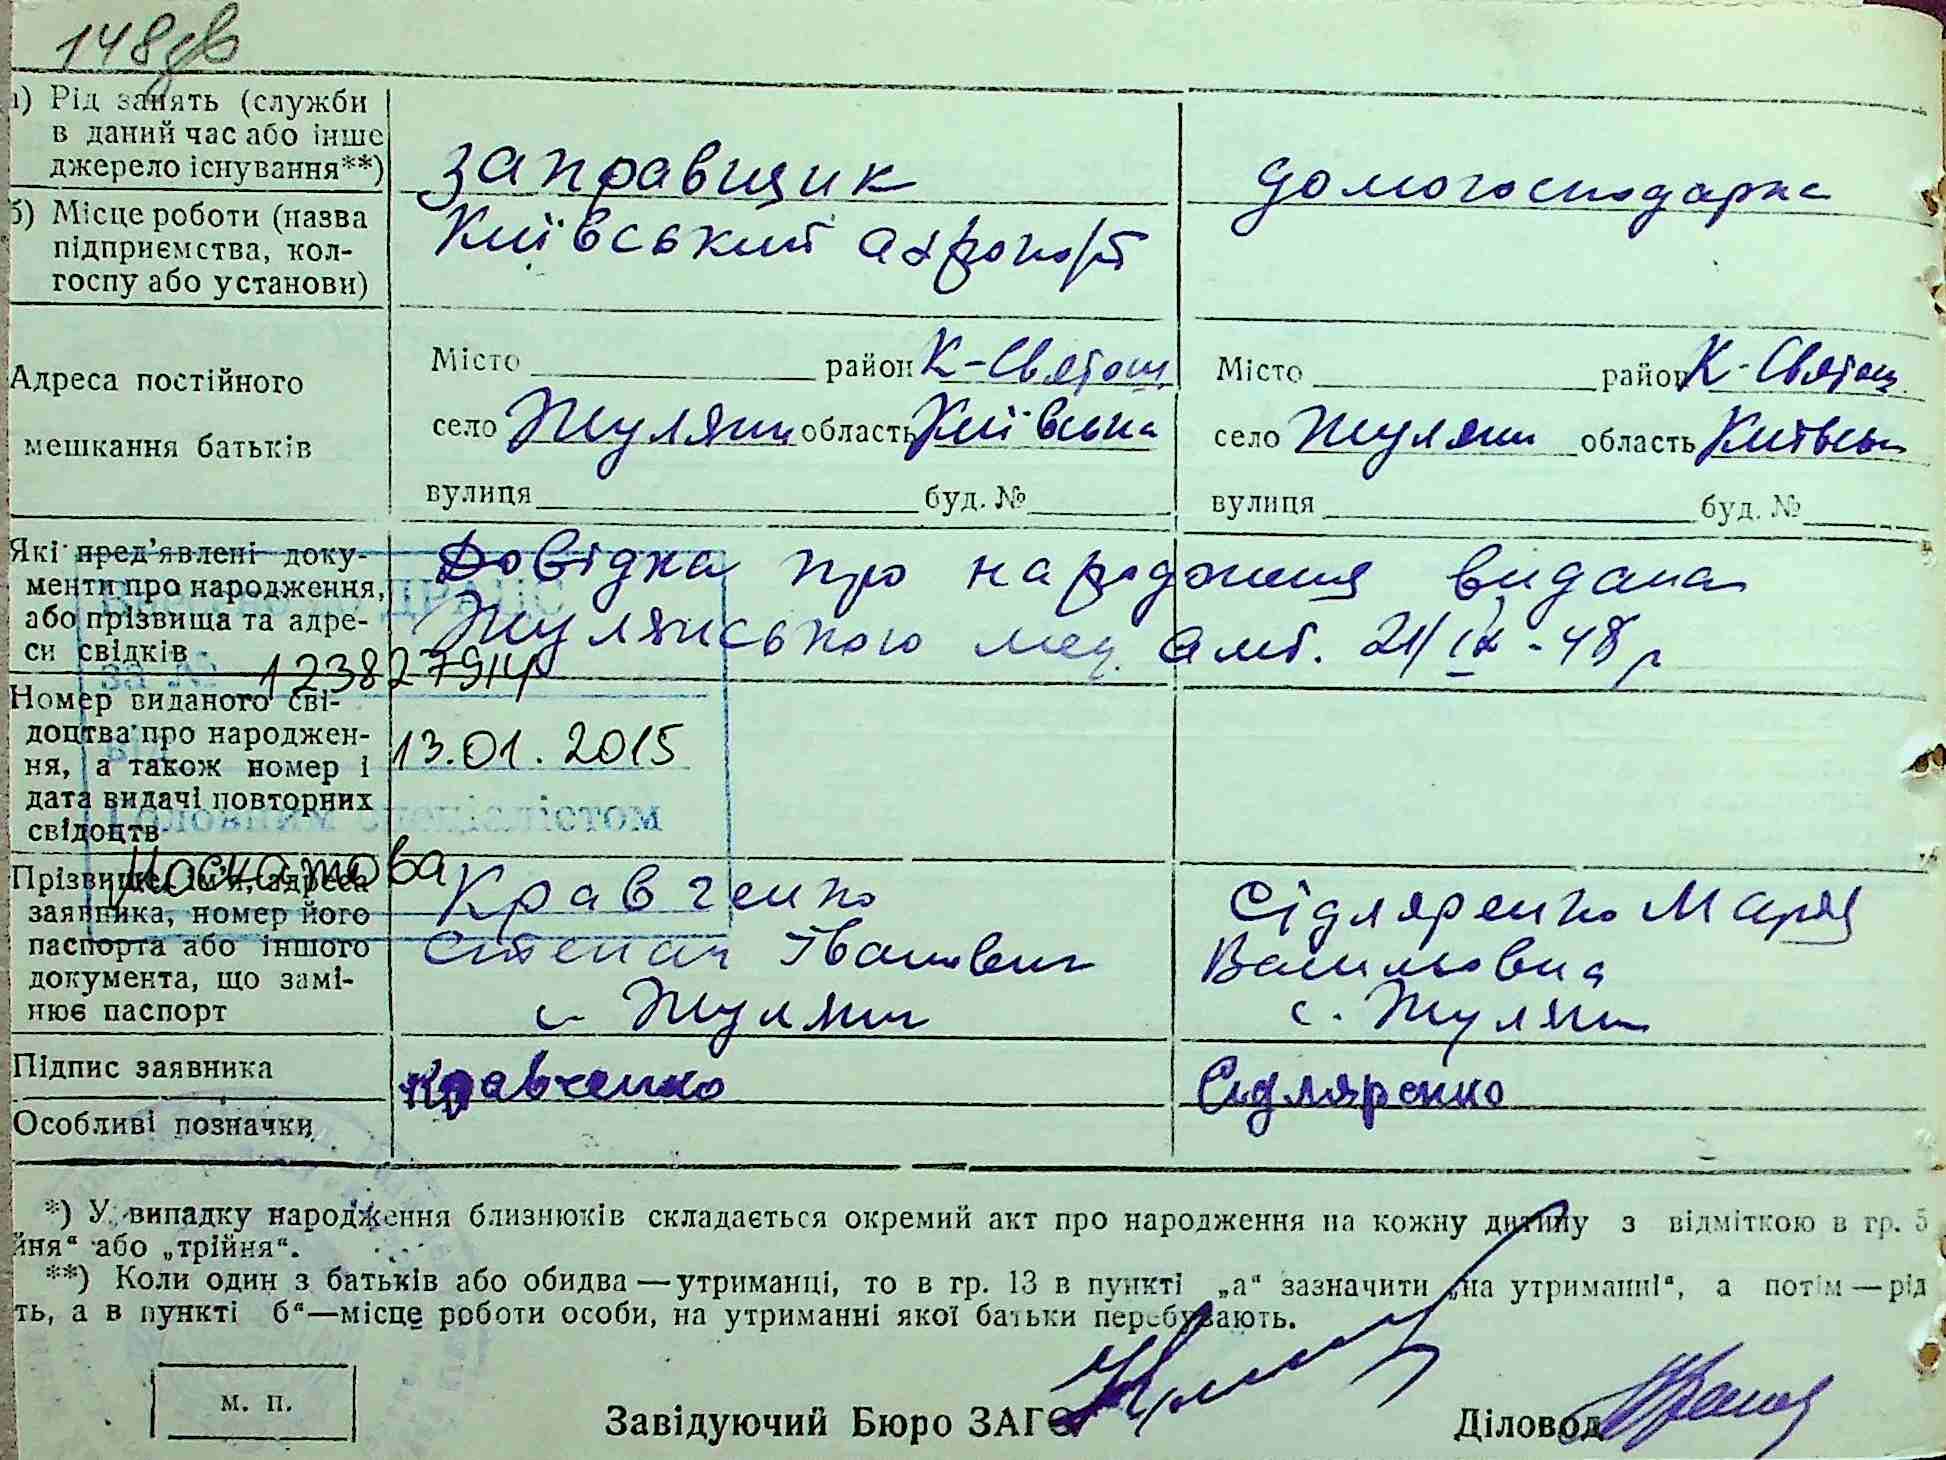 148зв
а) Рід занять (служби
в даний час або інше
джерело існування**)
заправщик
домогосподарка
б) Місце роботи (назва
підприємства, кол-
госпу або установи)
Київський аэропорт
Адреса постійного
мешкання батьків
Місто район К-Святош
село Жуляни область Київська
вулиця буд. №
Місто район К-Святош
село Жуляни область Київськ
вулиця буд. №
Які пред'явлені доку-
менти про народження,
або прізвища та адре-
си свідків
Довідка про народження видана
Жулянською мед. амб. 21/IX-48р
123827914
Номер виданого сві-
доцтва про народжен-
ня, а також номер і
дата видачі повторних
свідоцтв
13.01.2015
Прізвище, ім'я, адреса
заявника, номер його
паспорта або іншого
документа, що замі-
нює паспорт
Кравченко
Степан Іванович
с. Жуляни
Сідляренко Марія
Васильовна
с. Жуляни
Підпис заявника
Кравченко
Сідляренко
Особливі позначки
*) У випадку народження близнюків складається окремий акт про народження на кожну дитину з відміткою в гр. 5
йня“ або „трійня“.
**) Коли один з батьків або обидва—утриманці, то в гр. 13 в пункті „а“ зазначити „на утриманні“, а потім—рід
ть, а в пункті б“—місце роботи особи, на утриманні якої батьки перебувають.
м. п.
Завідуючий Бюро ЗАГС
Діловод